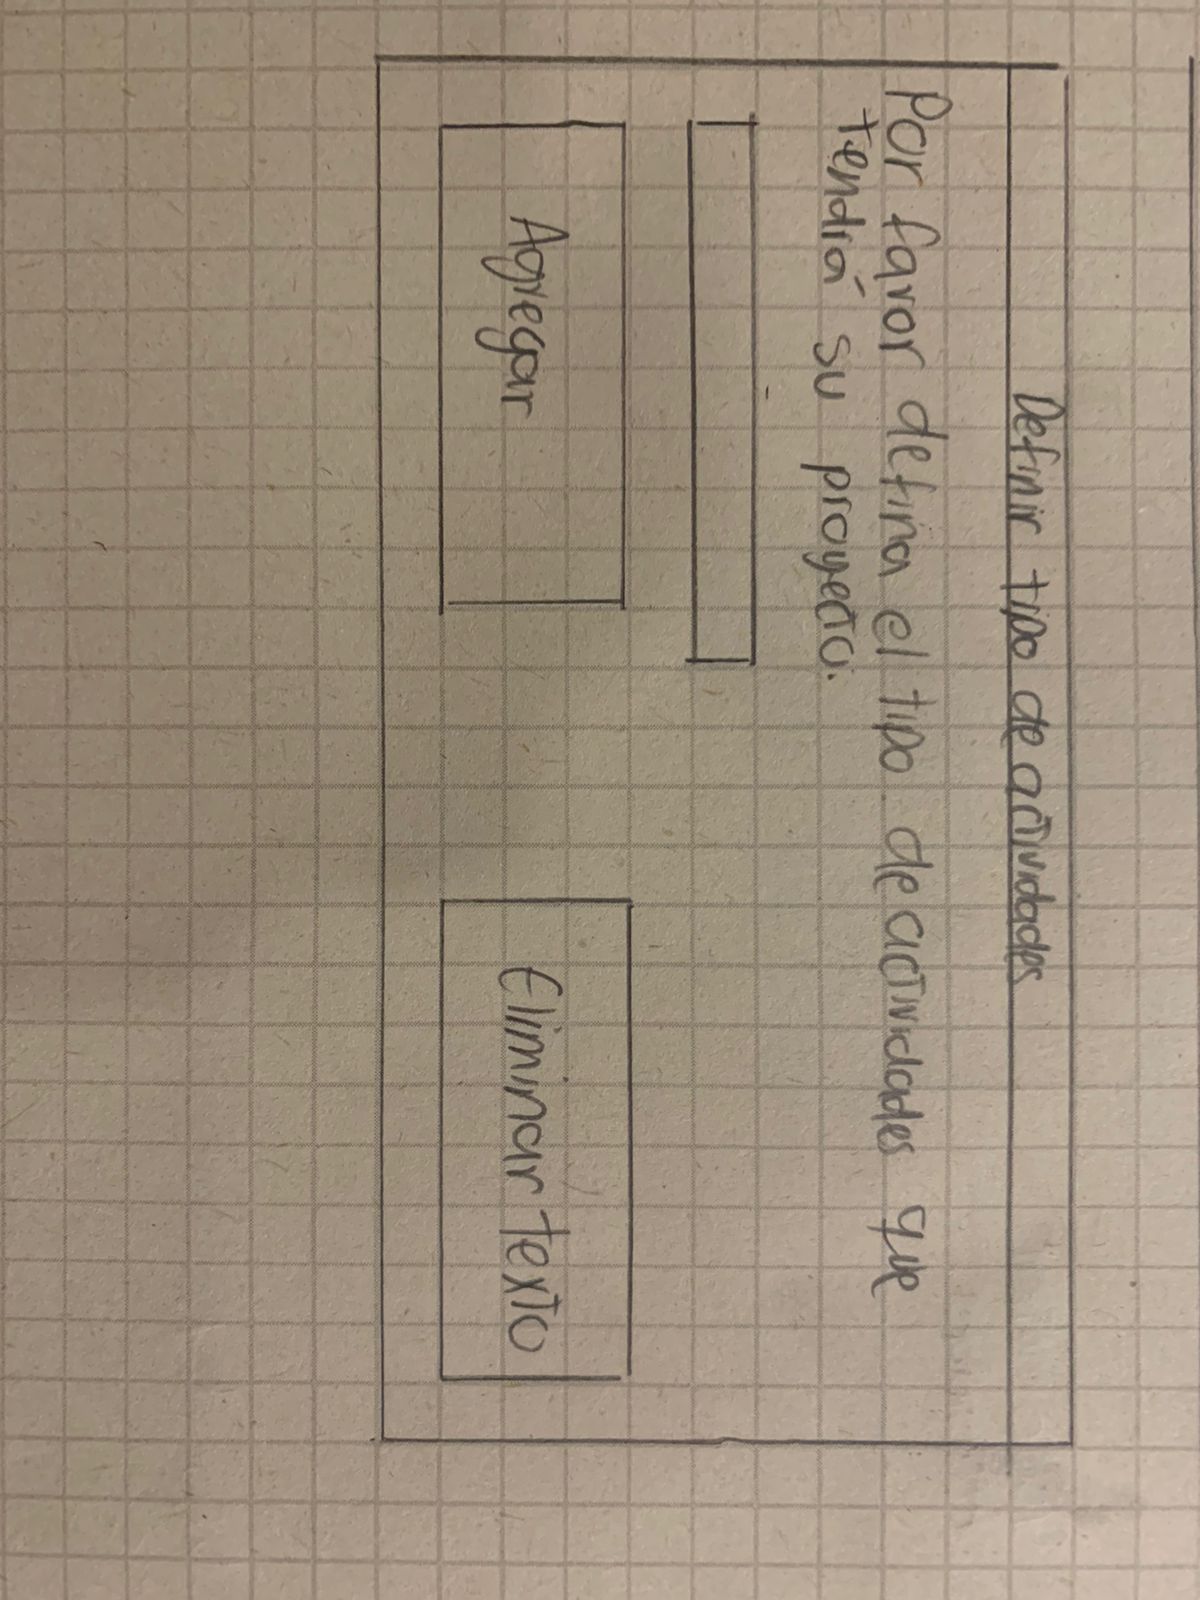 Definir tipo de actividades
Por favor defina el tipo de actividades que
tendrá su proyecto.
Agregar
Eliminar texto